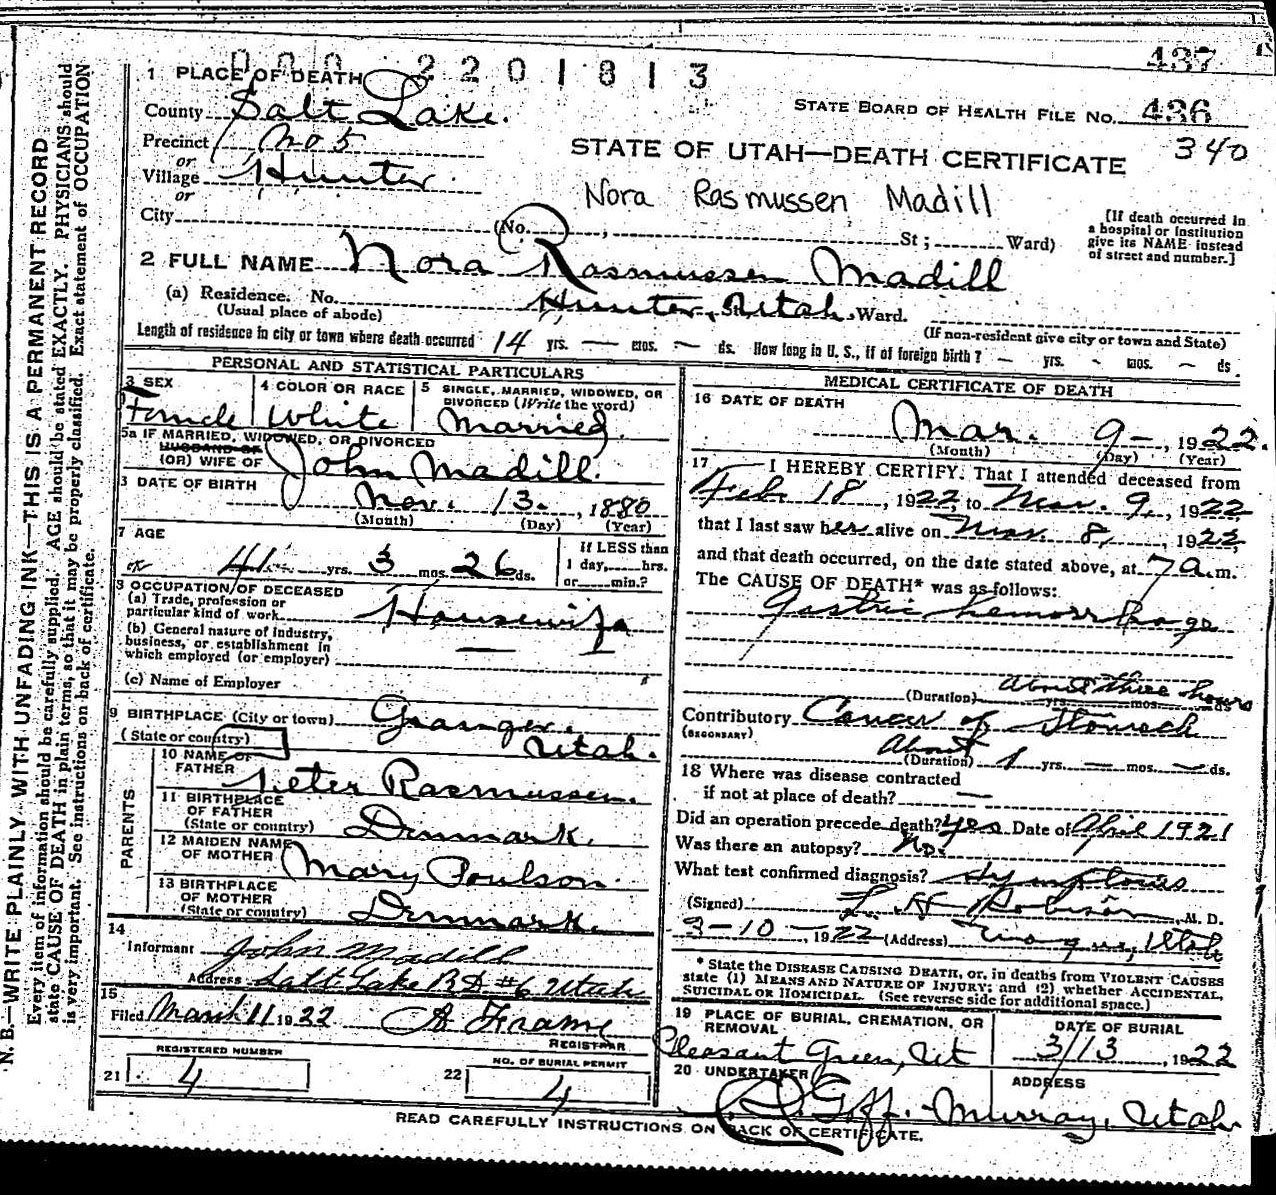 000 2201813
437
1 PLACE OF DEATH
County Salt Lake.
STATE BOARD OF HEALTH FILE No. 436
340
Precinct No 5
or
Village Hunter
or
STATE OF UTAH—DEATH CERTIFICATE
Nora Rasmussen Madill
City (No. , St; Ward)
[If death occurred in
a hospital or institution
give its NAME instead
of street and number.]
2 FULL NAME Nora Rasmussen Madill
(a) Residence. No. Hunter, Utah. St. Ward.
(Usual place of abode)
(If non-resident give city or town and State)
Length of residence in city or town where death occurred 14 yrs. — mos. — ds. How long in U. S., if of foreign birth? — yrs. - mos. — ds.
PERSONAL AND STATISTICAL PARTICULARS
3 SEX
Female
4 COLOR OR RACE
White
5 SINGLE, MARRIED, WIDOWED, OR
DIVORCED (Write the word)
Married.
5a IF MARRIED, WIDOWED, OR DIVORCED
HUSBAND OF
(OR) WIFE OF John Madill.
3 DATE OF BIRTH Nov. 13. , 1880
(Month) (Day) (Year)
7 AGE
or 41 yrs. 3 mos. 26 ds.
If LESS than
1 day, hrs.
or min.?
3 OCCUPATION OF DECEASED
(a) Trade, profession or
particular kind of work Housewife
(b) General nature of industry,
business, or establishment in
which employed (or employer) —
(c) Name of Employer
9 BIRTHPLACE (City or town) Granger.
(State or country) Utah.
PARENTS
10 NAME OF
FATHER Peter Rasmussen.
11 BIRTHPLACE
OF FATHER
(State or country) Denmark.
12 MAIDEN NAME
OF MOTHER Mary Poulson.
13 BIRTHPLACE
OF MOTHER
(State or country) Denmark.
14
Informant John Madill
Address Salt Lake RD #6 Utah
15
Filed March 11 1922 A Frame
REGISTRAR
REGISTERED NUMBER
21 4
NO. OF BURIAL PERMIT
22 4
MEDICAL CERTIFICATE OF DEATH
16 DATE OF DEATH
Mar. 9- , 1922.
(Month) (Day) (Year)
17 I HEREBY CERTIFY. That I attended deceased from
Feb 18 , 1922, to Mar. 9, , 1922,
that I last saw her alive on Mar. 8, , 1922,
and that death occurred, on the date stated above, at 7 a.m.
The CAUSE OF DEATH* was as follows:
Gastric hemorrhage
(Duration) about three hours yrs. mos. ds
Contributory Cancer of Stomach
(SECONDARY)
About
(Duration) 1 yrs. — mos. — ds.
18 Where was disease contracted
if not at place of death? —
Did an operation precede death? Yes Date of April 1921
Was there an autopsy? No.
What test confirmed diagnosis? Symptoms
(Signed) L. H. Robison , M. D.
3-10- , 1922 (Address) Utah
* State the DISEASE CAUSING DEATH, or, in deaths from VIOLENT CAUSES
state (1) MEANS AND NATURE OF INJURY; and (2) whether ACCIDENTAL,
SUICIDAL or HOMICIDAL. (See reverse side for additional space.)
19 PLACE OF BURIAL, CREMATION, OR
REMOVAL
Pleasant Green, Ut
DATE OF BURIAL
3/13 , 1922
20 UNDERTAKER
Goff.
ADDRESS
Murray, Utah
READ CAREFULLY INSTRUCTIONS ON BACK OF CERTIFICATE.
N. B.—WRITE PLAINLY WITH UNFADING INK—THIS IS A PERMANENT RECORD
Every item of information should be carefully supplied. AGE should be stated EXACTLY. PHYSICIANS should
state CAUSE OF DEATH in plain terms, so that it may be properly classified. Exact statement of OCCUPATION
is very important. See instructions on back of certificate.